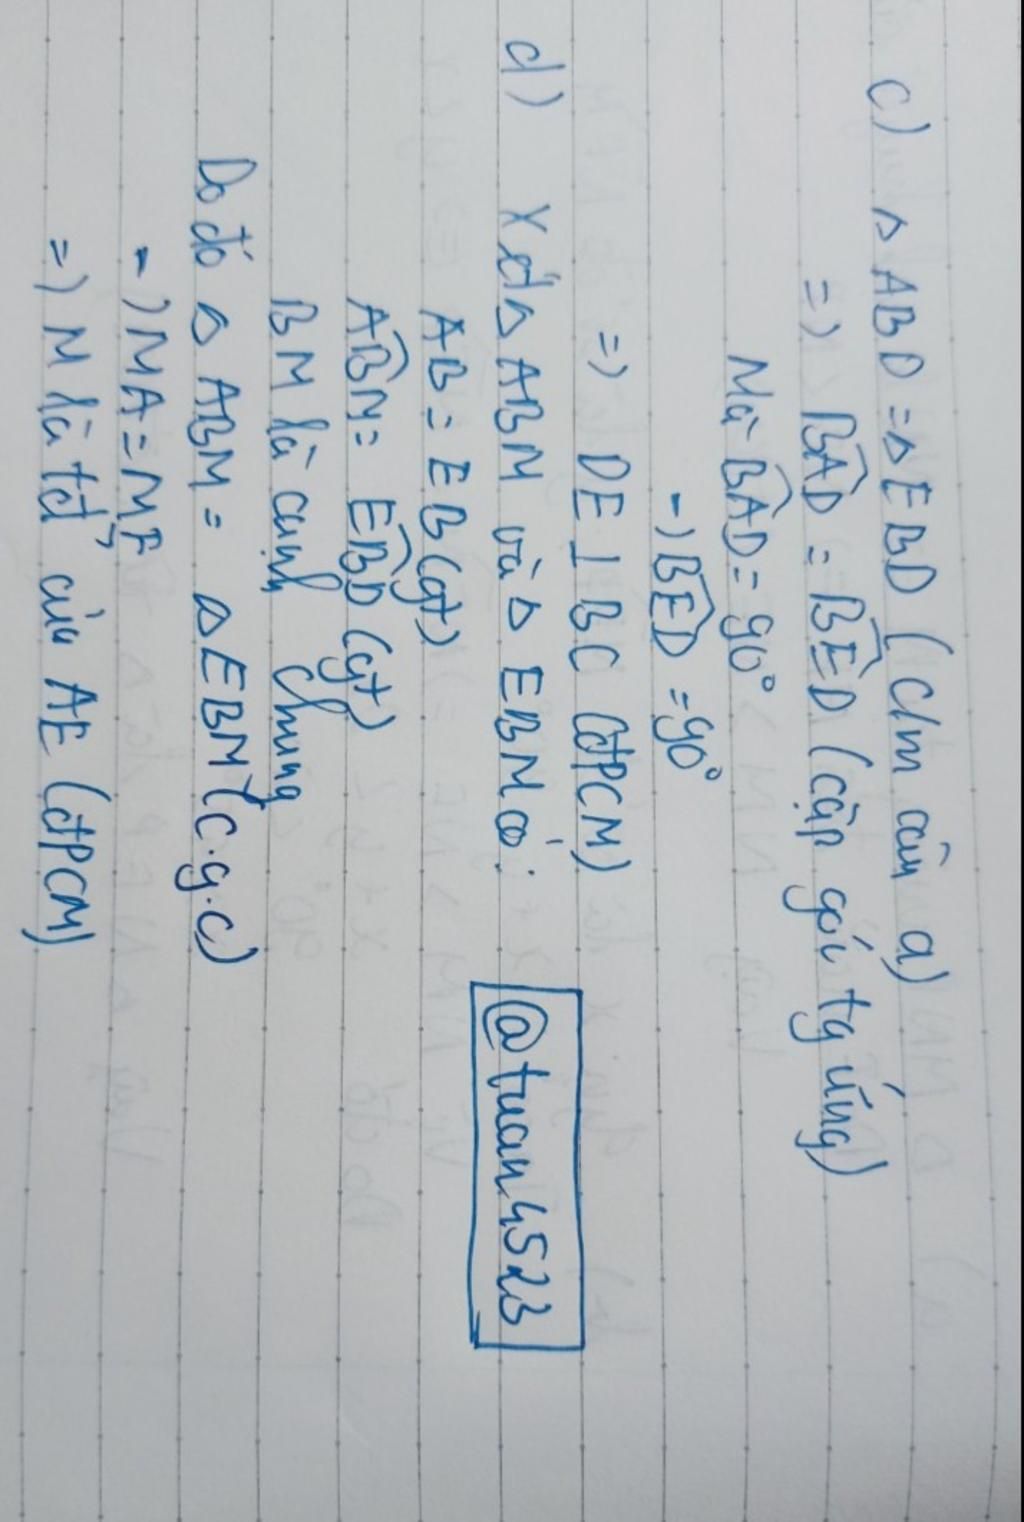 c) △ABD = △EBD (c/m câu a)
=) BAD̂ = BED̂ (cặp góc tg ứng)
Mà BAD̂ = 90°
-) BED̂ = 90°
=) DE ⊥ BC (đPCM)
d) Xét △ ABM và △ EBM có:
AB = EB (gt)
ABM̂ = EBD̂ (gt)
BM là cạnh chung
Do đó △ ABM = △EBM (c.g.c)
-) MA = ME
=) M là tđ của AE (đPCM)
@tuan4523